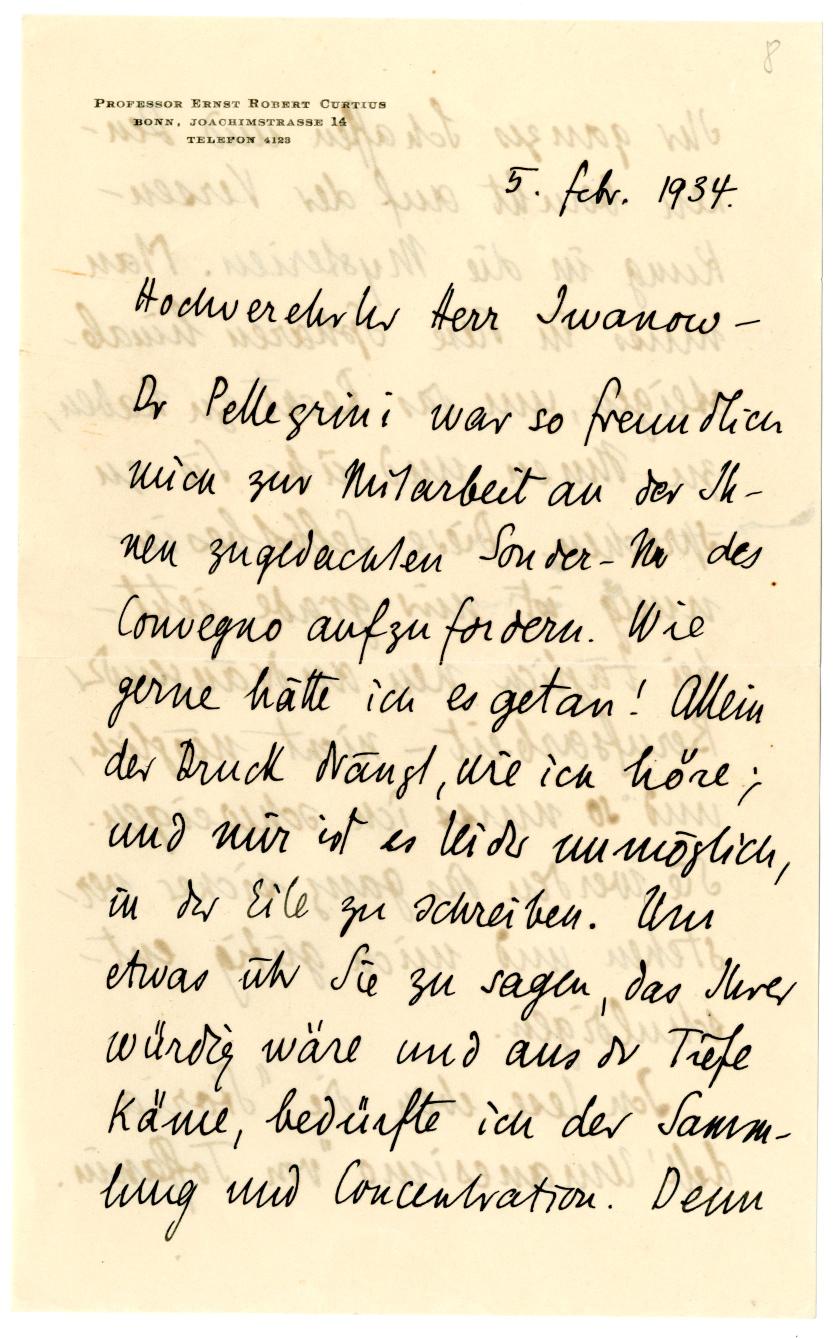 8
PROFESSOR ERNST ROBERT CURTIUS
BONN, JOACHIMSTRASSE 14
TELEFON 4123
5. febr. 1934.
Hochverehrter Herr Iwanow –
Dr Pellegrini war so freundlich
mich zur Mitarbeit an der Ih-
nen zugedachten Sonder-Nr des
Convegno aufzufordern. Wie
gerne hätte ich es getan! Allein
der Druck drängt, wie ich höre;
und mir ist es leider unmöglich,
in der Eile zu schreiben. Um
etwas über Sie zu sagen, das Ihrer
würdig wäre und aus der Tiefe
käme, bedürfte ich der Samm-
lung und Concentration. Denn